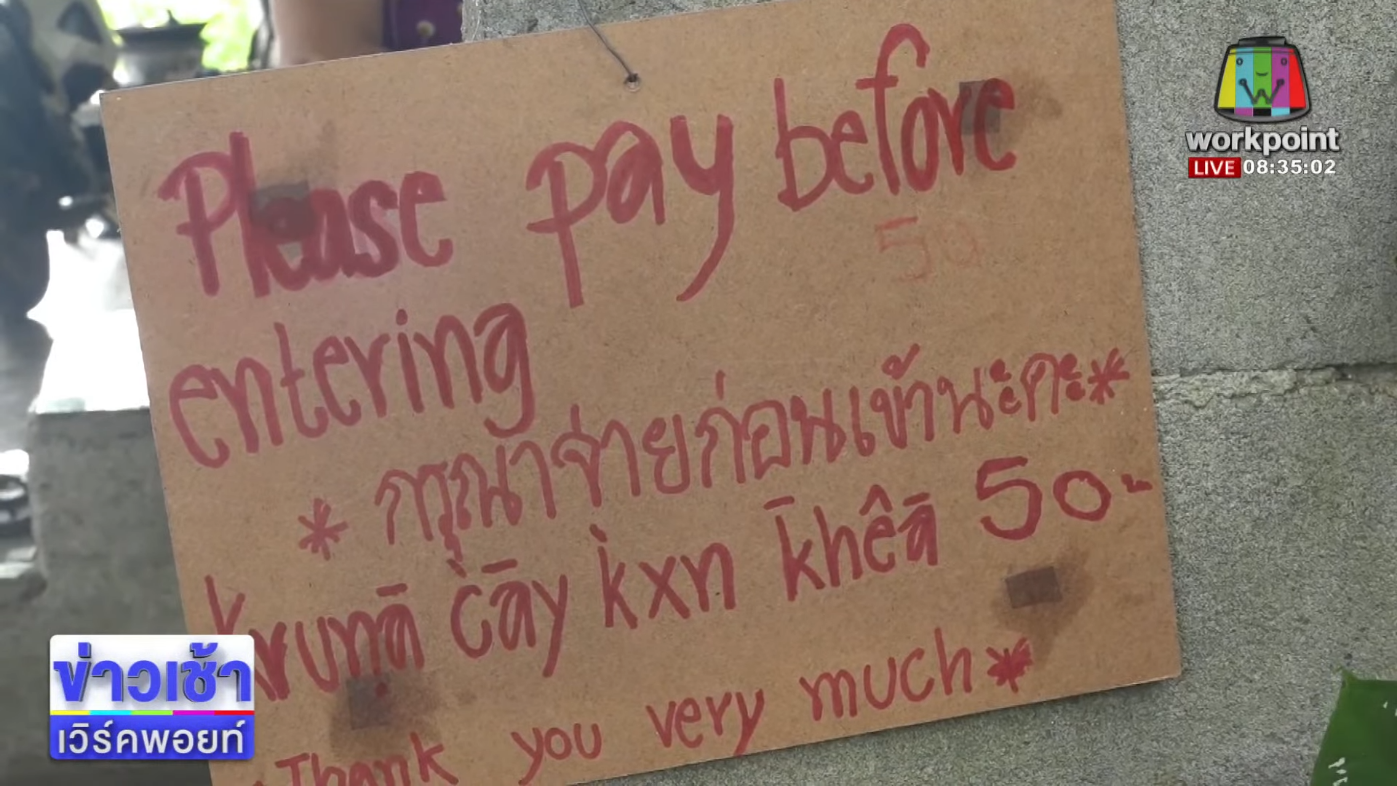 Please pay before
50
entering
* กรุณาจ่ายก่อนเข้านะคะ*
kruṇā c̀āy k̀xn k̄hêā 50
Thank you very much*
workpoint
LIVE 08:35:02
ข่าวเช้า
เวิร์คพอยท์